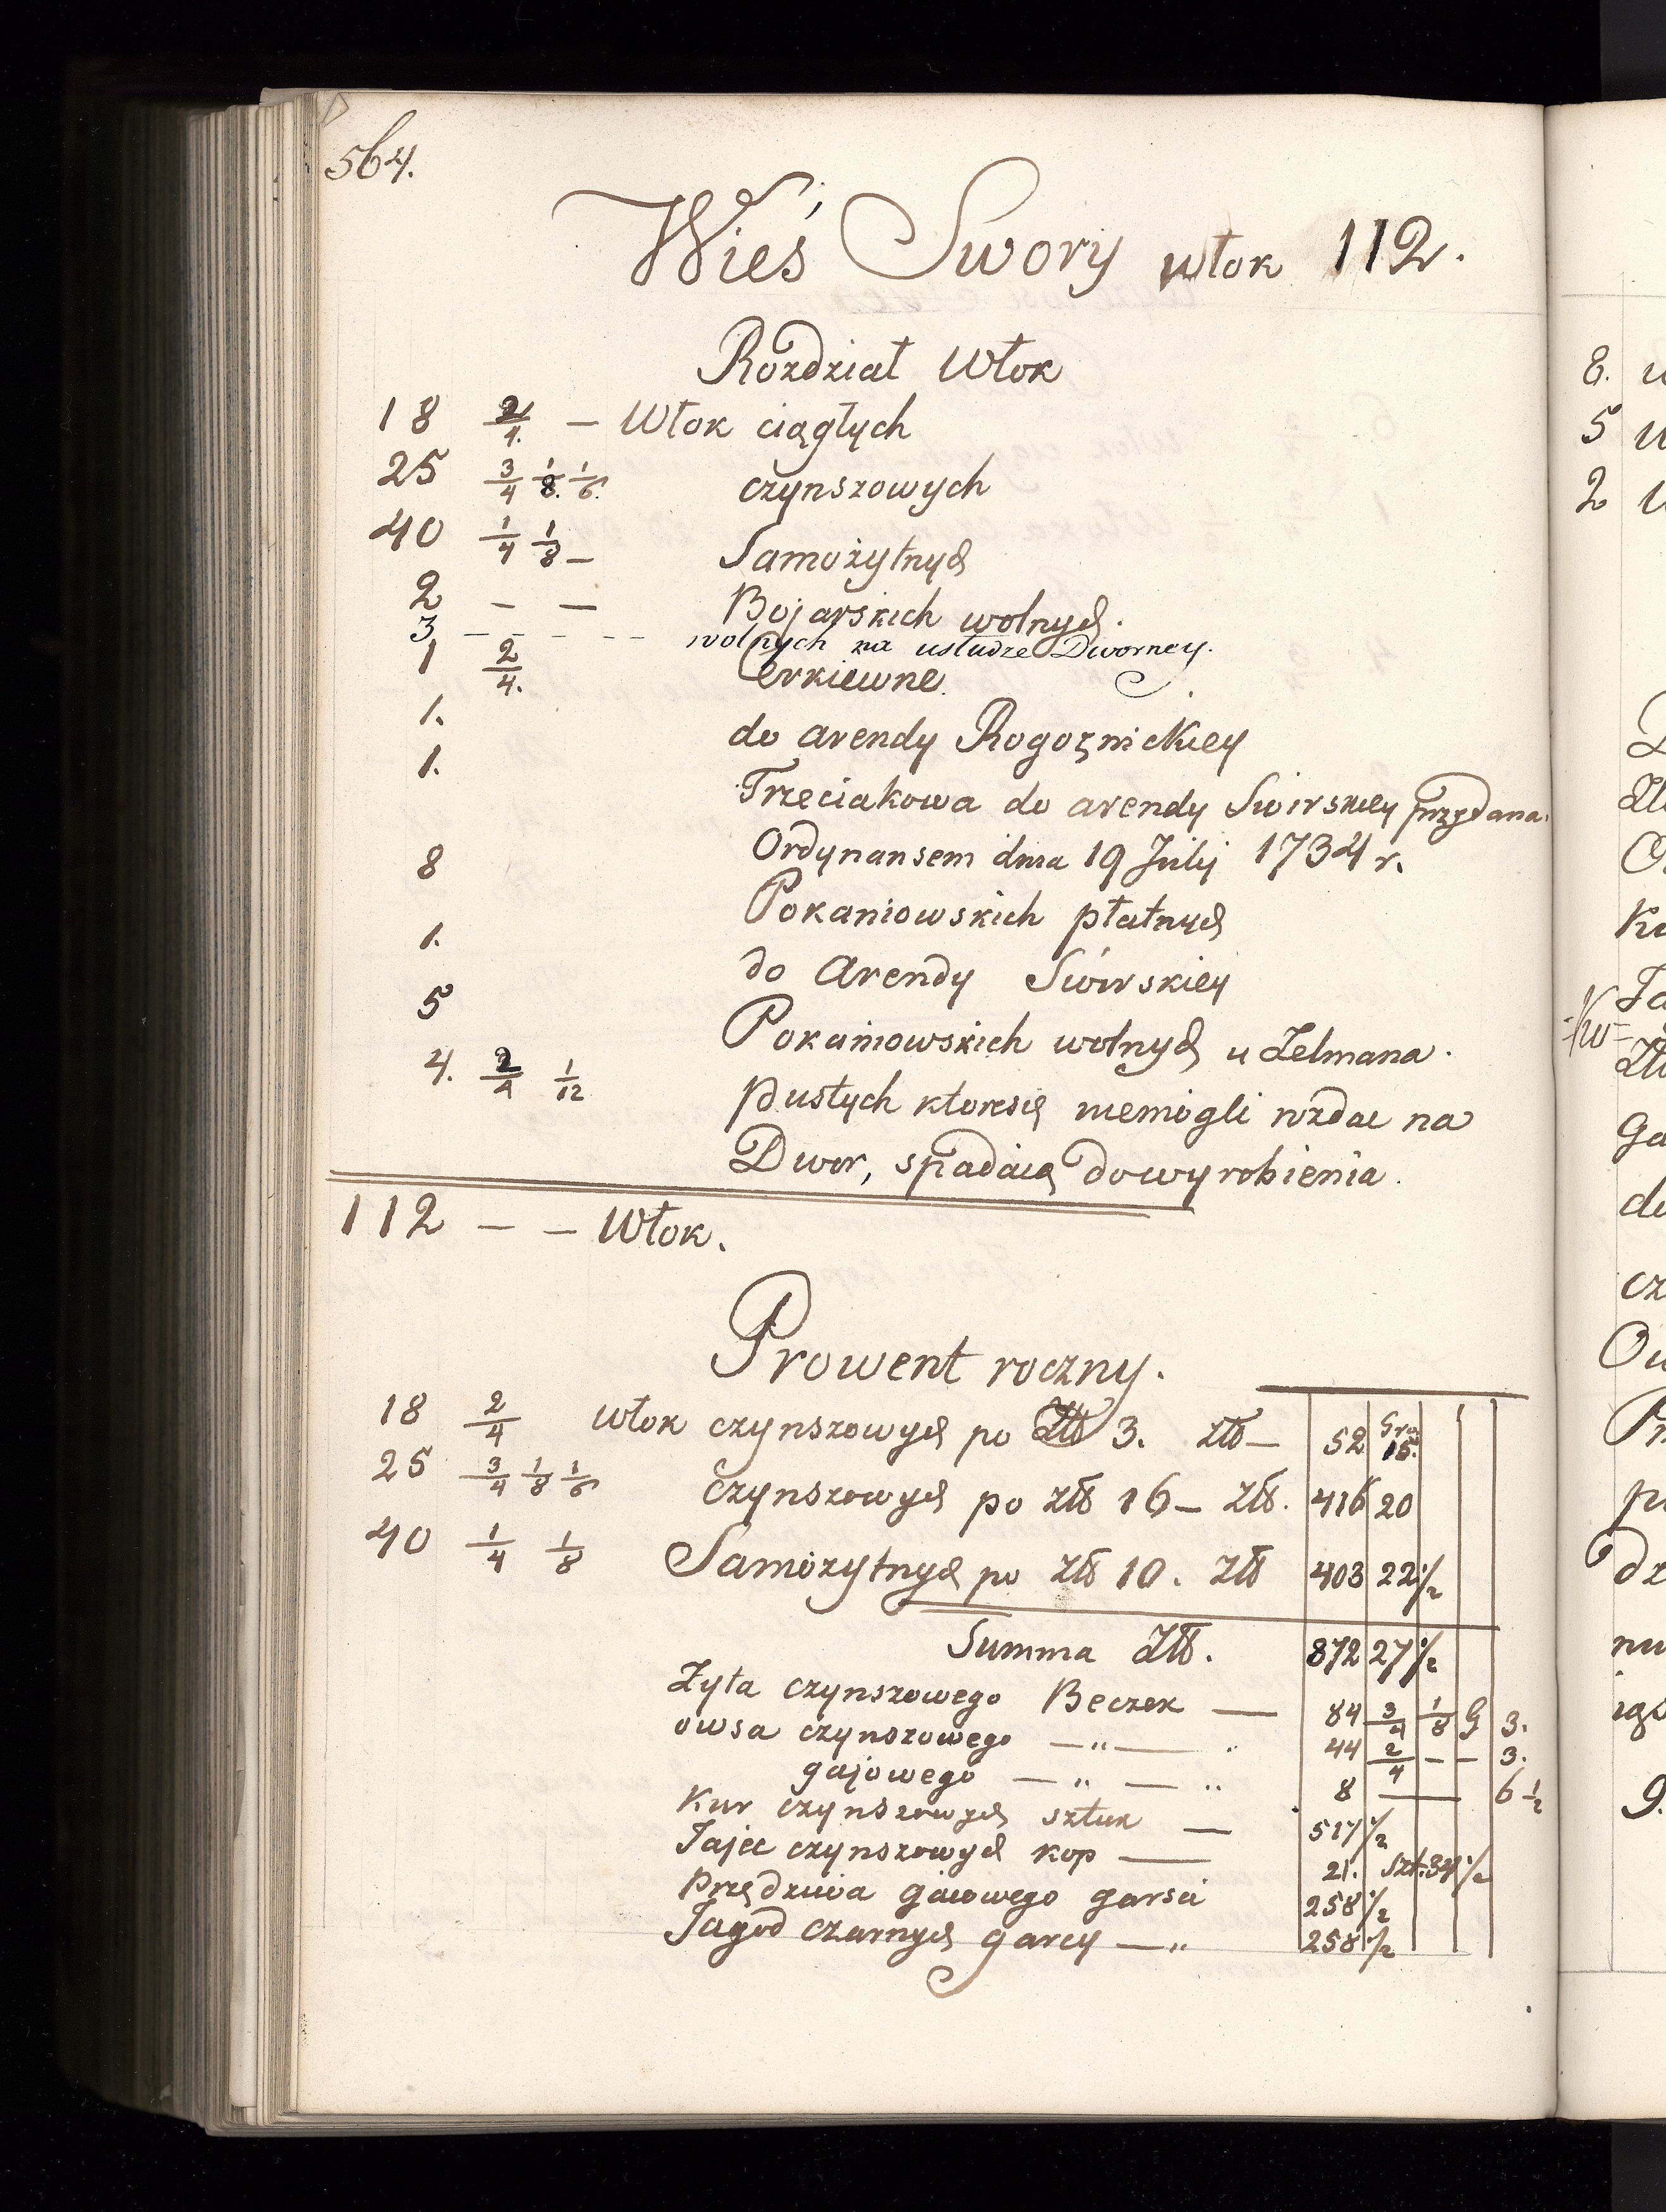 564.
Wieś Swory włok 112.
Rozdział Włok
18 2/4. — Włok ciągłych
25 3/4 1/8. 1/6. czynszowych
40 1/4 1/8 — Samożytnych
2 — — Bojarskich wolnych.
3 — — — — wolnych na usłudze Dworney.
1 2/4. Cerkiewne.
1. do arendy Rogoznickiey
1. Trzeciakowa do arendy Swirskiey przydana.
Ordynansem dnia 19 Julij 1734 r.
8 Pokaniowskich płatnych
1. do Arendy Swirskiey
5 Pokaniowskich wolnych u Zelmana.
4. 2/4 1/12 pustych ktoresię niemogli rozdać na
Dwor, spadaią do wyrobienia.
112 — — Włok.
Prowent roczny.
18 2/4 włok czynszowych po Złł 3. złł — 52 Gro 15.
25 3/4 1/8 1/6 czynszowych po złł 16 — złł. 416 20
40 1/4 1/8 Samożytnych po złł 10. złł 403 22 1/2
Summa Złł. 872 27 1/2
Żyta czynszowego Beczek — 84 3/4 1/8 G 3.
owsa czynszowego — " — " 44 2/4 — — 3.
gajowego — " — " 8 — 6 1/2
Kur czynszowych sztuk — 517 1/2
Jajec czynszowych kop — 21. szt. 34 1/2
Przędziwa gaiowego garści 258 1/2
Jagod czarnych garcy — " 258 1/2